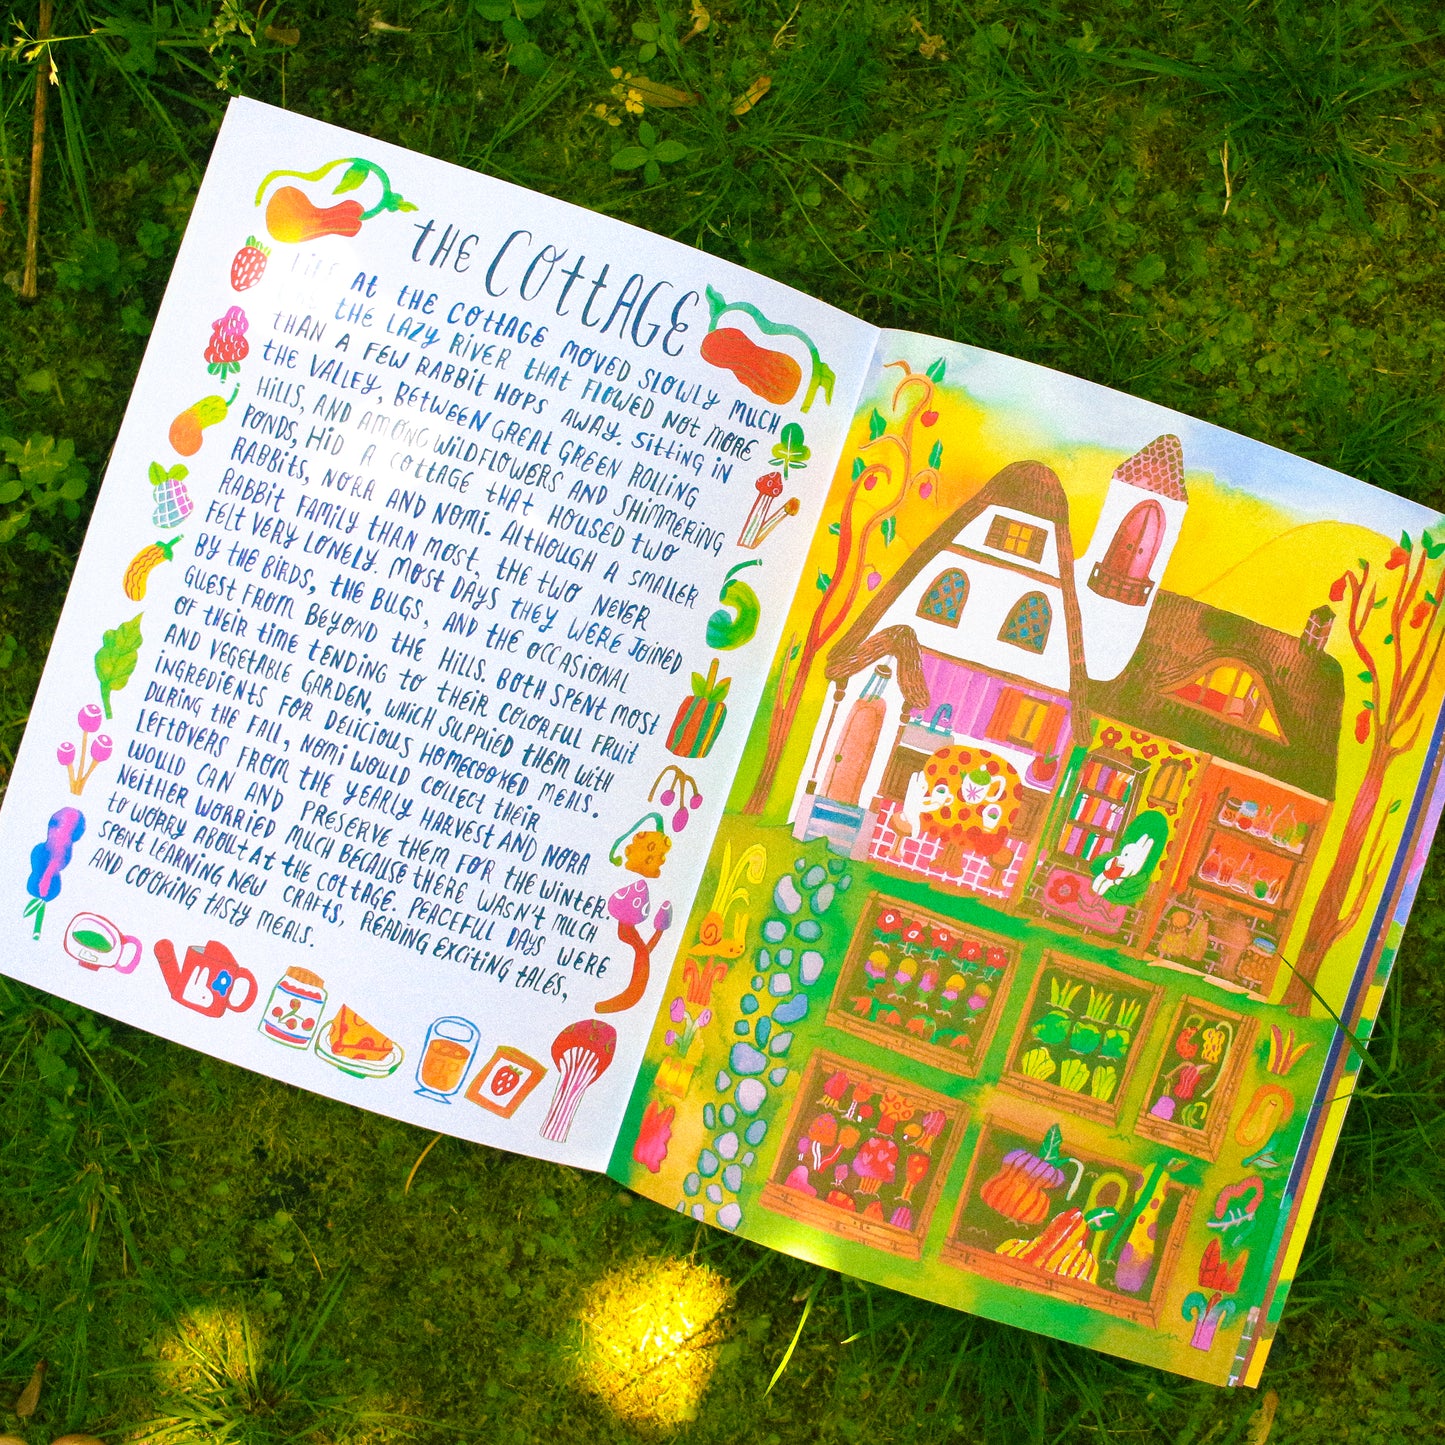 THE COTTAGE
LIFE AT THE COTTAGE MOVED SLOWLY MUCH
LIKE THE LAZY RIVER THAT FLOWED NOT MORE
THAN A FEW RABBIT HOPS AWAY. SITTING IN
THE VALLEY, BETWEEN GREAT GREEN ROLLING
HILLS, AND AMONG WILDFLOWERS AND SHIMMERING
PONDS, HID A COTTAGE THAT HOUSED TWO
RABBITS, NORA AND NOMI. ALTHOUGH A SMALLER
RABBIT FAMILY THAN MOST, THE TWO NEVER
FELT VERY LONELY. MOST DAYS THEY WERE JOINED
BY THE BIRDS, THE BUGS, AND THE OCCASIONAL
GUEST FROM BEYOND THE HILLS. BOTH SPENT MOST
OF THEIR TIME TENDING TO THEIR COLORFUL FRUIT
AND VEGETABLE GARDEN, WHICH SUPPLIED THEM WITH
INGREDIENTS FOR DELICIOUS HOMECOOKED MEALS.
DURING THE FALL, NOMI WOULD COLLECT THEIR
LEFTOVERS FROM THE YEARLY HARVEST AND NORA
WOULD CAN AND PRESERVE THEM FOR THE WINTER.
NEITHER WORRIED MUCH BECAUSE THERE WASN'T MUCH
TO WORRY ABOUT AT THE COTTAGE. PEACEFUL DAYS WERE
SPENT LEARNING NEW CRAFTS, READING EXCITING TALES,
AND COOKING TASTY MEALS.